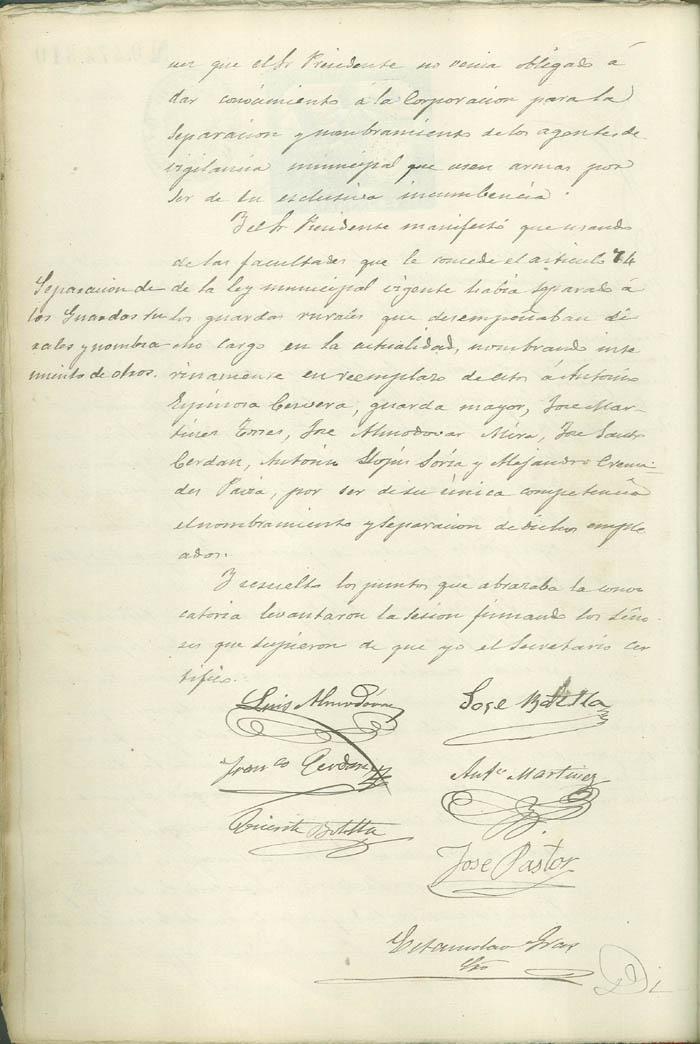 ver que el Sr Presidente no venia obligado á
dar conocimiento á la Corporacion para la
separacion y nombramiento de los agentes de
vigilancia municipal que usen armas por
ser de su esclusiva incumbencia.
Y el Sr Presidente manifestó que usando
de las facultades que le concede el articulo 74
de la ley municipal vigente habia separado á
los guardas rurales que desempeñaban di-
cho cargo en la actualidad, nombrando inte
rinamente en reemplazo de estos á Antonio
Espinosa Cervera, guarda mayor, Jose Mar-
tinez Torres, Jose Almodovar Mira, Jose Santo
Cerdan, Antonio Llopis Soria y Alejandro Crema-
des Paiza, por ser de su única competencia
el nombramiento y separacion de dichos emple
ados.
Separacion de
los Guardas ru
rales y nombra
miento de otros.
Y resuelto los puntos que abrazaba la convo
catoria levantaron la sesion firmando los Seño-
res que supieron de que yo el Secretario cer
tifico.
Luis Almodóvar
José Botella
Franco Cerdan
Anto Martinez
Vicente Botella
Jose Pastor
Estanislao Grau
Srio
Di